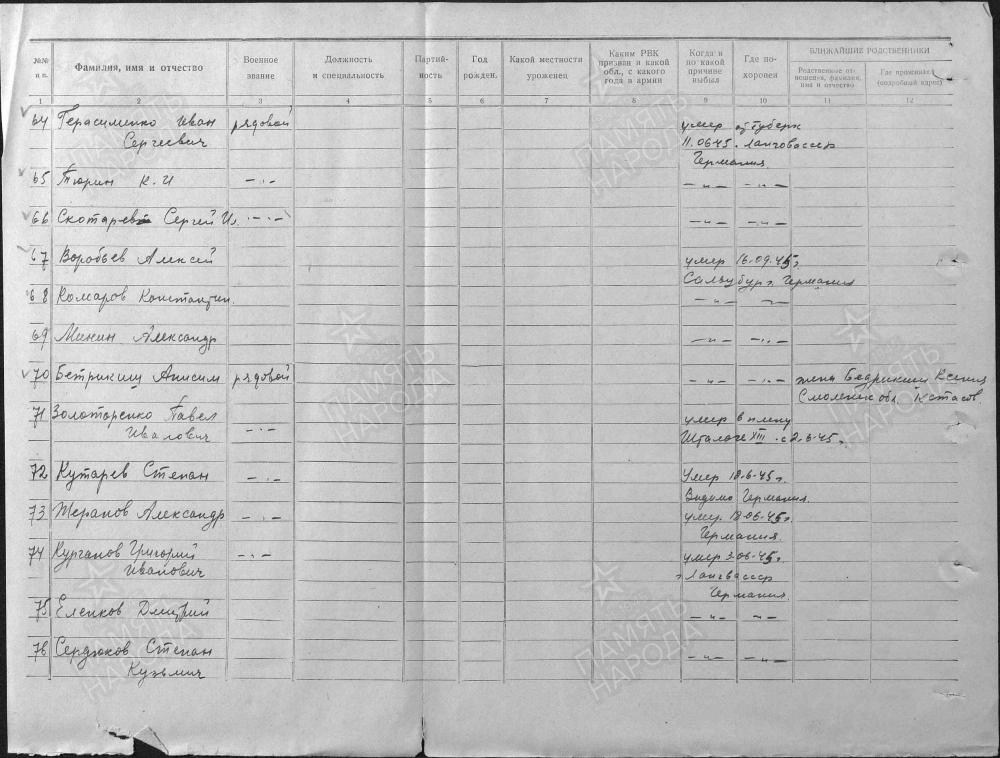 №№ п.п.
Фамилия, имя и отчество
Военное звание
Должность и специальность
Партийность
Год рожден.
Какой местности уроженец
Каким РВК призван и какой обл., с какого года в армии
Когда и по какой причине выбыл
Где похоронен
БЛИЖАЙШИЕ РОДСТВЕННИКИ
Родственные отношения, фамилия, имя и отчество
Где проживают (подробный адрес)
1 2 3 4 5 6 7 8 9 10 11 12
64 Герасименко Иван рядовой умер от туберк
Сергеевич 11.06.45. Лангвассер
Германия
65 Тюрин К.И —"— —"— —"—
66 Скотарев Сергей И. —"— —"— —"—
67 Воробьев Алексей умер 16.09.45г.
Сальцбург. Германия
68 Комаров Константин. —"— —"—
69 Минин Александр —"— —"—
70 Бетрикин Анисим рядовой —"— —"— жена Бедрикин Ксения
Смоленск обл.
71 Золотаренко Павел умер в плену
Иванович —"— Шталаге XIII
72 Кутарев Степан —"— Умер 18.6.45г.
Видимо Германия.
73 Жеранов Александр —"— умер. 18.06.45г.
Германия.
74 Курганов Григорий —"— умер 3.06.45г.
Иванович г Лангвассер
Германия.
75 Еленков Дмитрий —"— —"—
76 Сердюков Степан —"— —"—
Кузьмич
ПАМЯТЬ НАРОДА